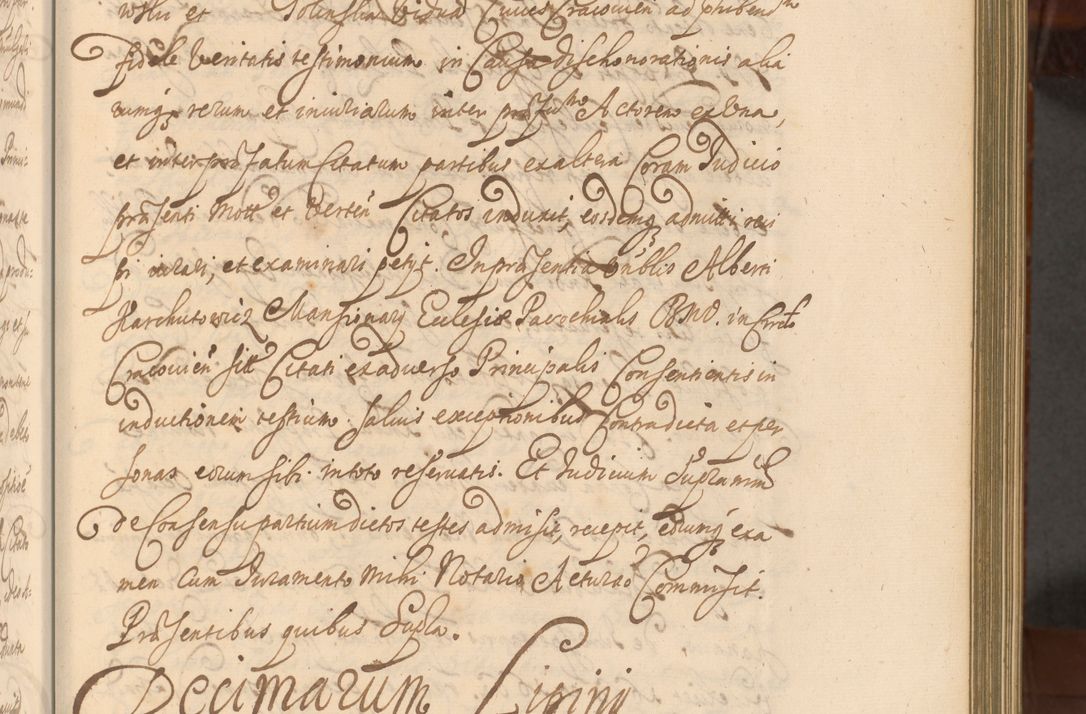 et Viduã Cives Cracovien ad phibenm
fidele veritatis testimonium in Causa dishonorationis alia
rumq, rerum et iniuriarum inter præfatum Actorem ex una,
et inter præfatum Citatum partibus ex altera Coram Judicio
præsenti Mott et Verten Citatos induxit, eosdemq admitti reci
pi iurari, et examinari petijt. In præsentia Publis Alberti
Harchutowicz Mansionarij Ecclesiæ Parochialis BMV. in Circlo
Cracovien sitæ Citati ex adverso Principalis Consentientis in
inductionem testium salvis exceptionibus Contra dicta et per
sonas eorum sibi in toto reservatis. Et Judicium Supramm
de Consensu partium dictos testes admisit, recepit, eorumq exa
men cum Juramento mihi Notario Actuario Commisit.
Præsentibus quibus Supla.
Decimarum